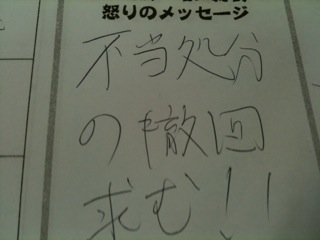 怒りのメッセージ
不当処分
の撤回
求む!!